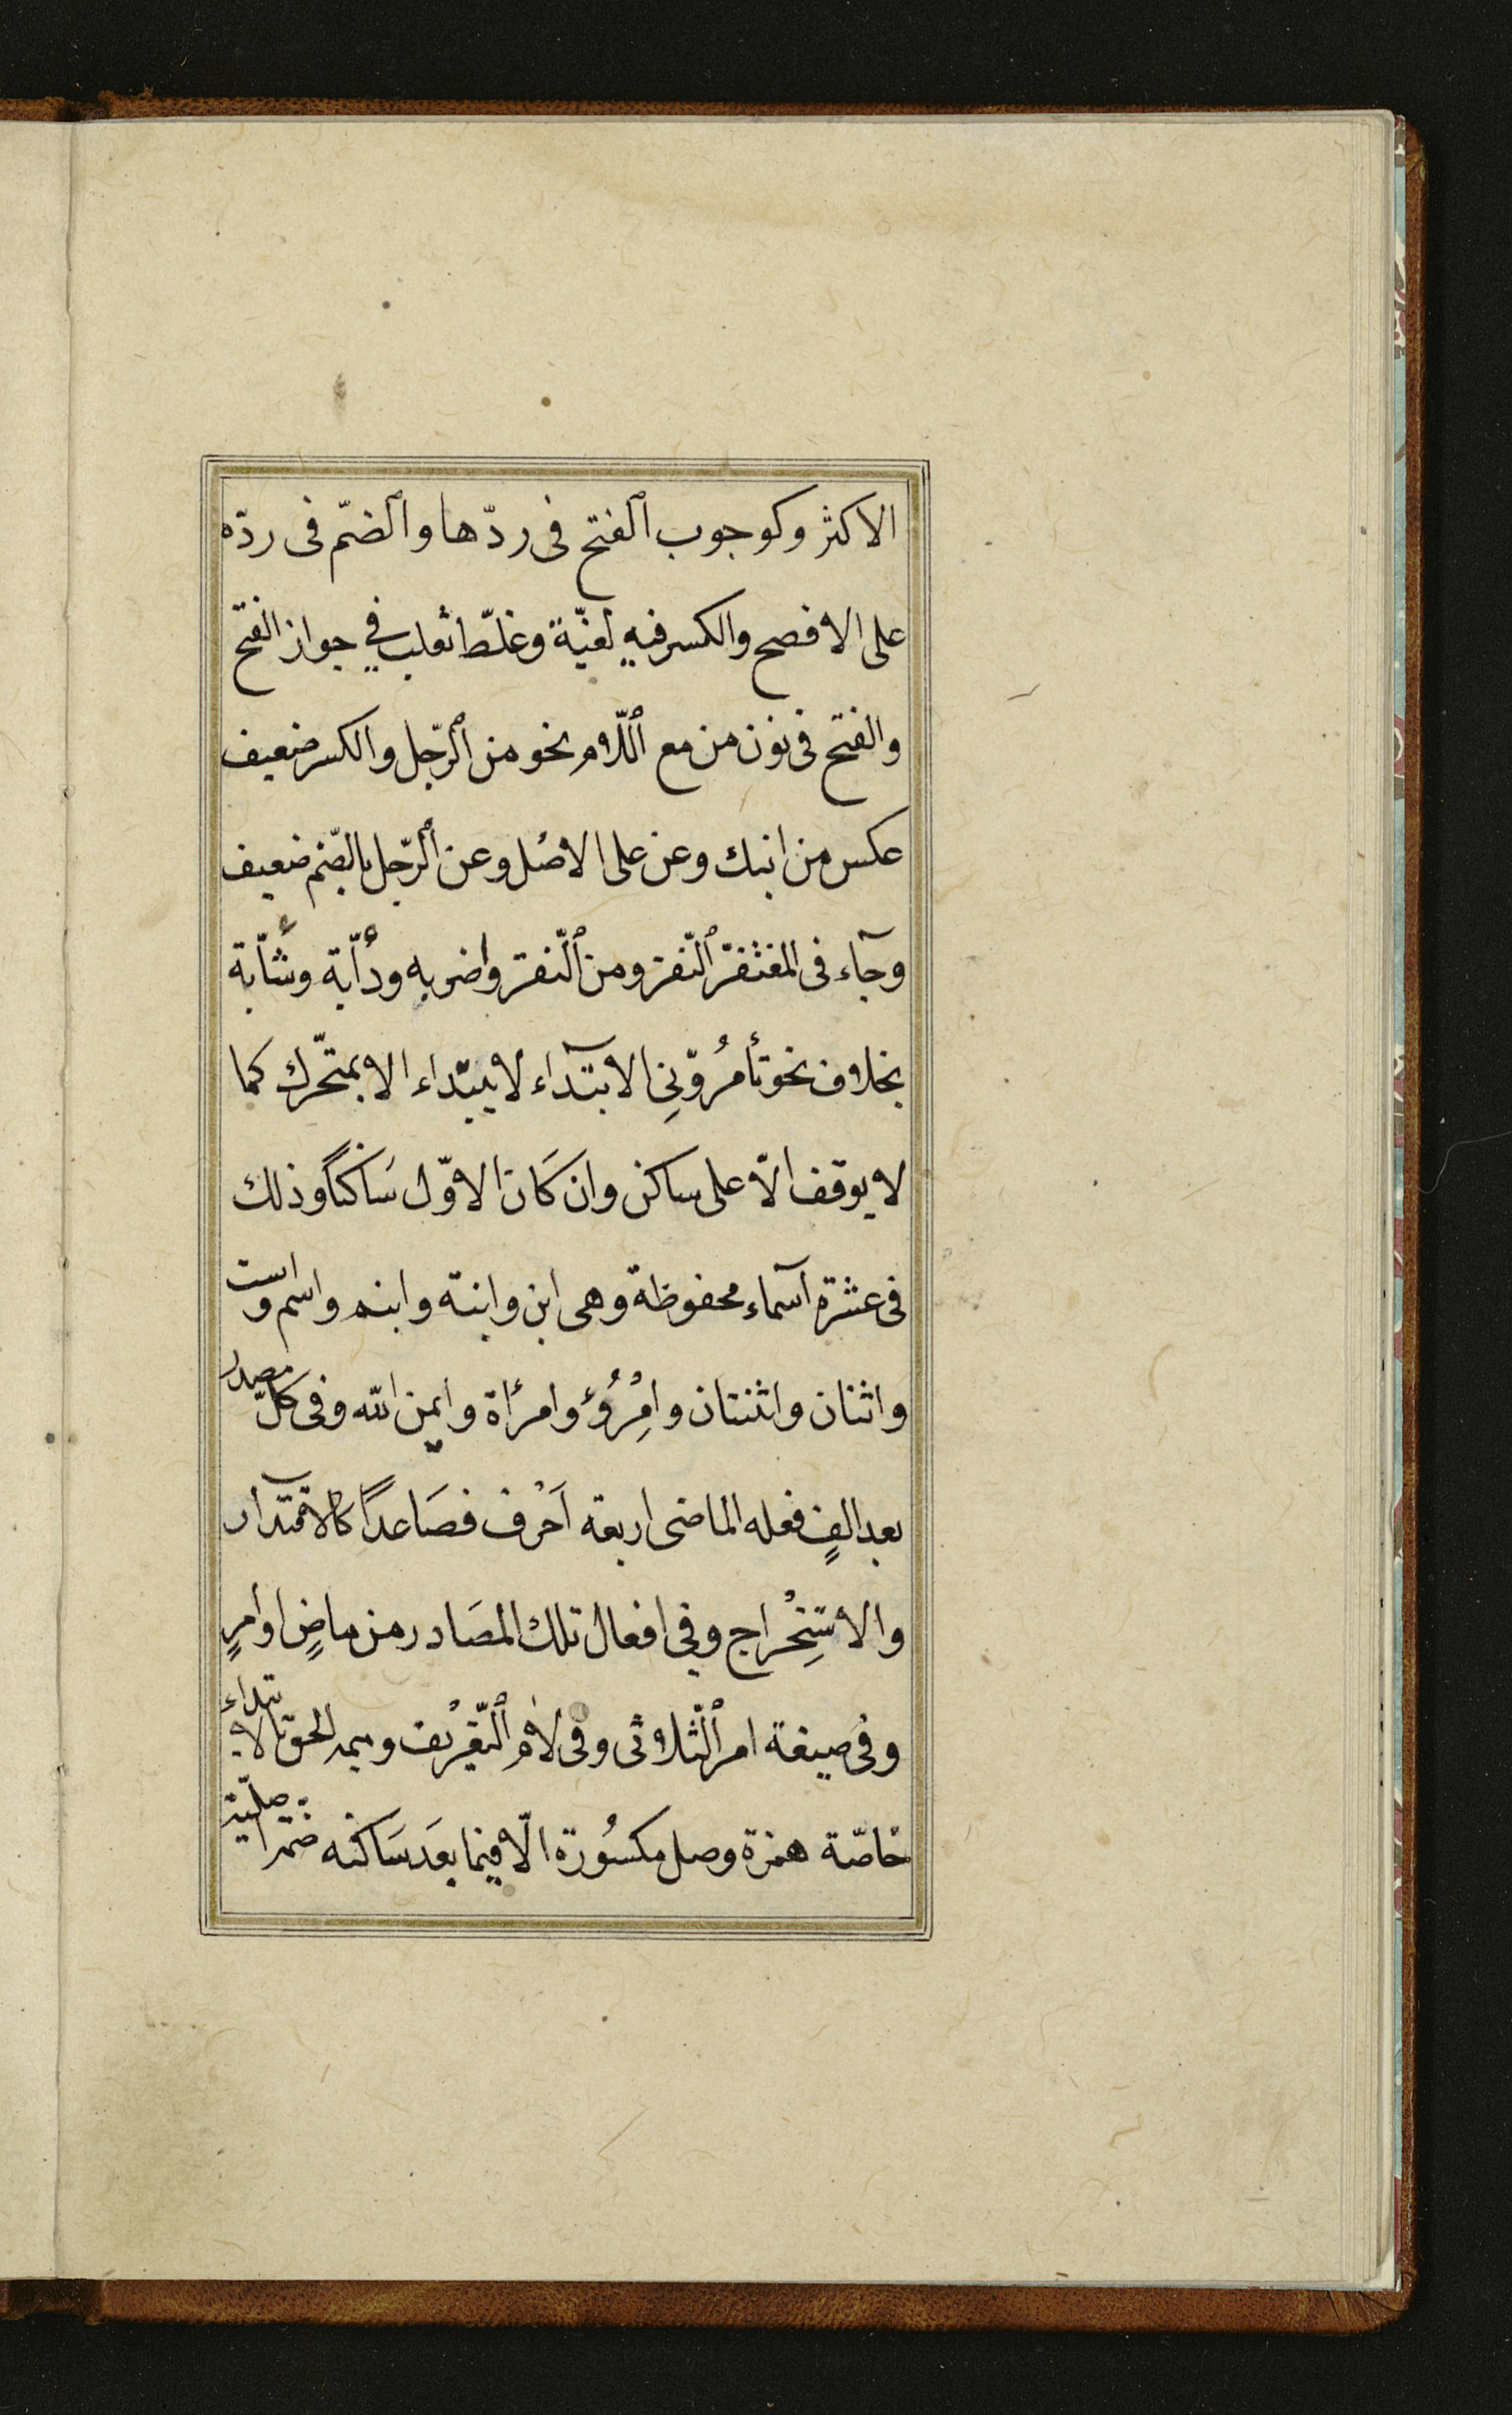 الاكثر وكوجوب الفتح فى ردّها والضمّ فى ردّه
على الافصح والكسر فيه لغيّة وغلّط ثعلب في جواز الفتح
والفتح فى نون من مع اللّام نحو من الرّجل والكسر ضعيف
عكس من ابنك وعن على الاصل وعن الرّجل بالضّم ضعيف
وجآء فى المغتفر النّقر ومن النّقر واضربه ودأبّة وشأبّة
بخلاف نحو تأمرُوّنِى الابتدآء لا يبتداء الا بمتحّرك كما
لا يوقف الّا على ساكن وان كَان الاوّل سَاكنًا وذلك
فى عشرة اسمآء محفوظة وهى ابن وابنة وابنم واسم واست
واثنان واثنتان وامْرُؤُ وامرأة وايمن الله وفى كلّ مصدر
بعد الفٍ فعله الماضى اربعة اَحْرف فصَاعدًا كالاقتدآر
والاستِخْراج وفي افعال تلك المصَادر من ماضٍ او امرٍ
وفى صيغة امر الثّلاثى وفى لام التّعْريف وميمه الحق الابتداء
خاصّة همزة وصل مكسُورة الّا فيما بعَد سَاكنه ضمّة اصليّة